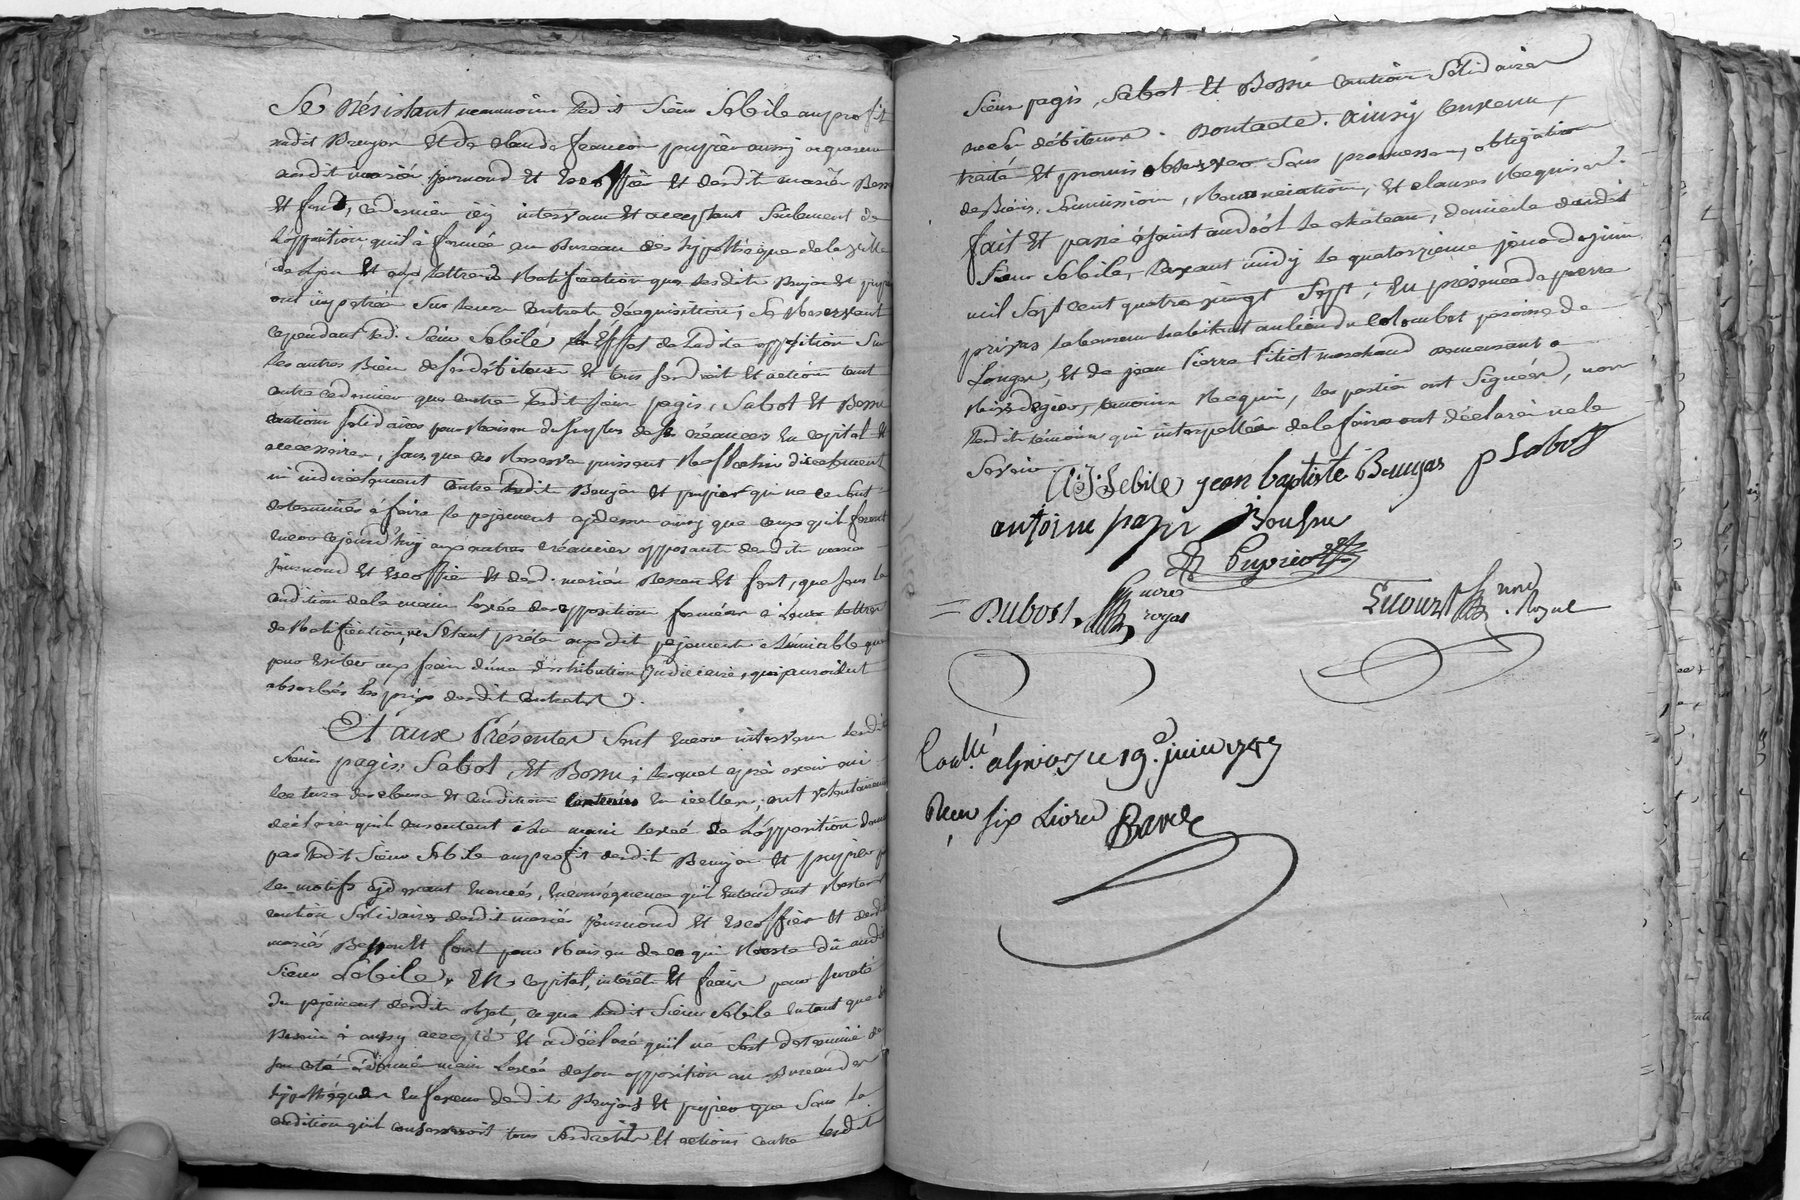 Se Désistant neanmoins ledit Sieur Sebile au profit
dudit Brujas Et de claude francois pupier aussy acquereur
desdit mariés journoud Et Escoffier Et desdit mariés Besson
Et font, ce dernier icy intervenu Et acceptant Seulement de
L'opposition quil à formée au Bureau des hypotheque de la Ville
de Lyon Et aux lettres de Ratification que lesdit Brujas Et pupier
ont impetrée Sur leurs Contrats d'acquisition; Se Reservant
cependant led. Sieur Sebile L'Effet de Ladite opposition Sur
les autres Biens de ses débiteurs Et tous ses droit Et actions tant
contre ce dernier que contre ledit sieur pagis, Sabot Et Bossu
cautions solidaires pour Raison du surplus de ses créances En capital Et
accessoires, sans que ces Reserve puissent Reflechir directement
ni indirectement Contre ledit Brujas Et pupier qui ne ce sont
determinés à faire le payement cydessus ainsy que ceux qu'il feront
Encore cejourd'huy aux autres créanciers opposants desdit mariés
journoud Et Escoffier Et desd. mariés Besson Et font, que sous la
condition de la main levée des oppositions formées à Leurs lettres
de Ratification, ne s'etant prétés auxdit payements à l'amiable que
pour Eviter aux frais d'une distribution Judiciaire, qui auroient
absorbés les prix desdit Contrats.
Et aux Présentes Sont Encore intervenu lesdit
Sieurs pagis, Sabot, Et Bossu; lesquel après avoir oui
lecture des clauses Et Conditions contenües En icelles, ont volontairement
déclaré qu'il consentent à La main levée de L'opposition donnée
par ledit Sieur Sebile au profit desdit Brujas Et pupier par
les motifs cydevant Enoncés, En conséquence qu'il Entendent Rester
caution Solidaires desdit mariés journoud Et Escoffier Et desdit
mariés Besson Et font pour Raison de ce qui Reste Dû audit
Sieur Sebile, En Capital, intérêt Et frais pour sureté
du payement desdits objet, ce que ledit Sieur Sebile En tant que de
Besoin à aussy accepté Et a déclaré qu'il ne s'est determiné de
son coté à donné main Levée de son opposition au Bureau des
hypothéques En faveur desdits Brujas Et pupier que Sous la
condition qu'il conserveroit tous ses droits Et actions contre lesdit
Sieurs pagis, Sabot Et Bossu Caution Solidaires
de ses débiteurs. Dont acte. Ainsy Convenu,
traité Et promis observer Sous promesses, obligation
de Biens, Soumission, Renonciation, Et clauses Requises.
fait Et passé à saint andéol le château, domicile dudit
Sieur Sebile, Avant midy le quatorzieme jour de juin
mil Sept cent quatre vingt Sept; En présence de pierre
prijas laboureur habitant au lieu du Colombet paroisse de
Longes, Et de jean Pierre Pitiot marchand demeurant à
Rivedegier, temoins Requis, les parties ont Signées, non
lesdits témoins qui interpellés de le faire ont déclarés ne le
Savoir
Sebile jean baptiste Brujas P Sabot
antoine pagis Boussu
Pupier
= Dubost, nores royal
Lucourt nore Royal
Conllé. à Givors le 19e. juin 1787
Reçu six Livres Barel